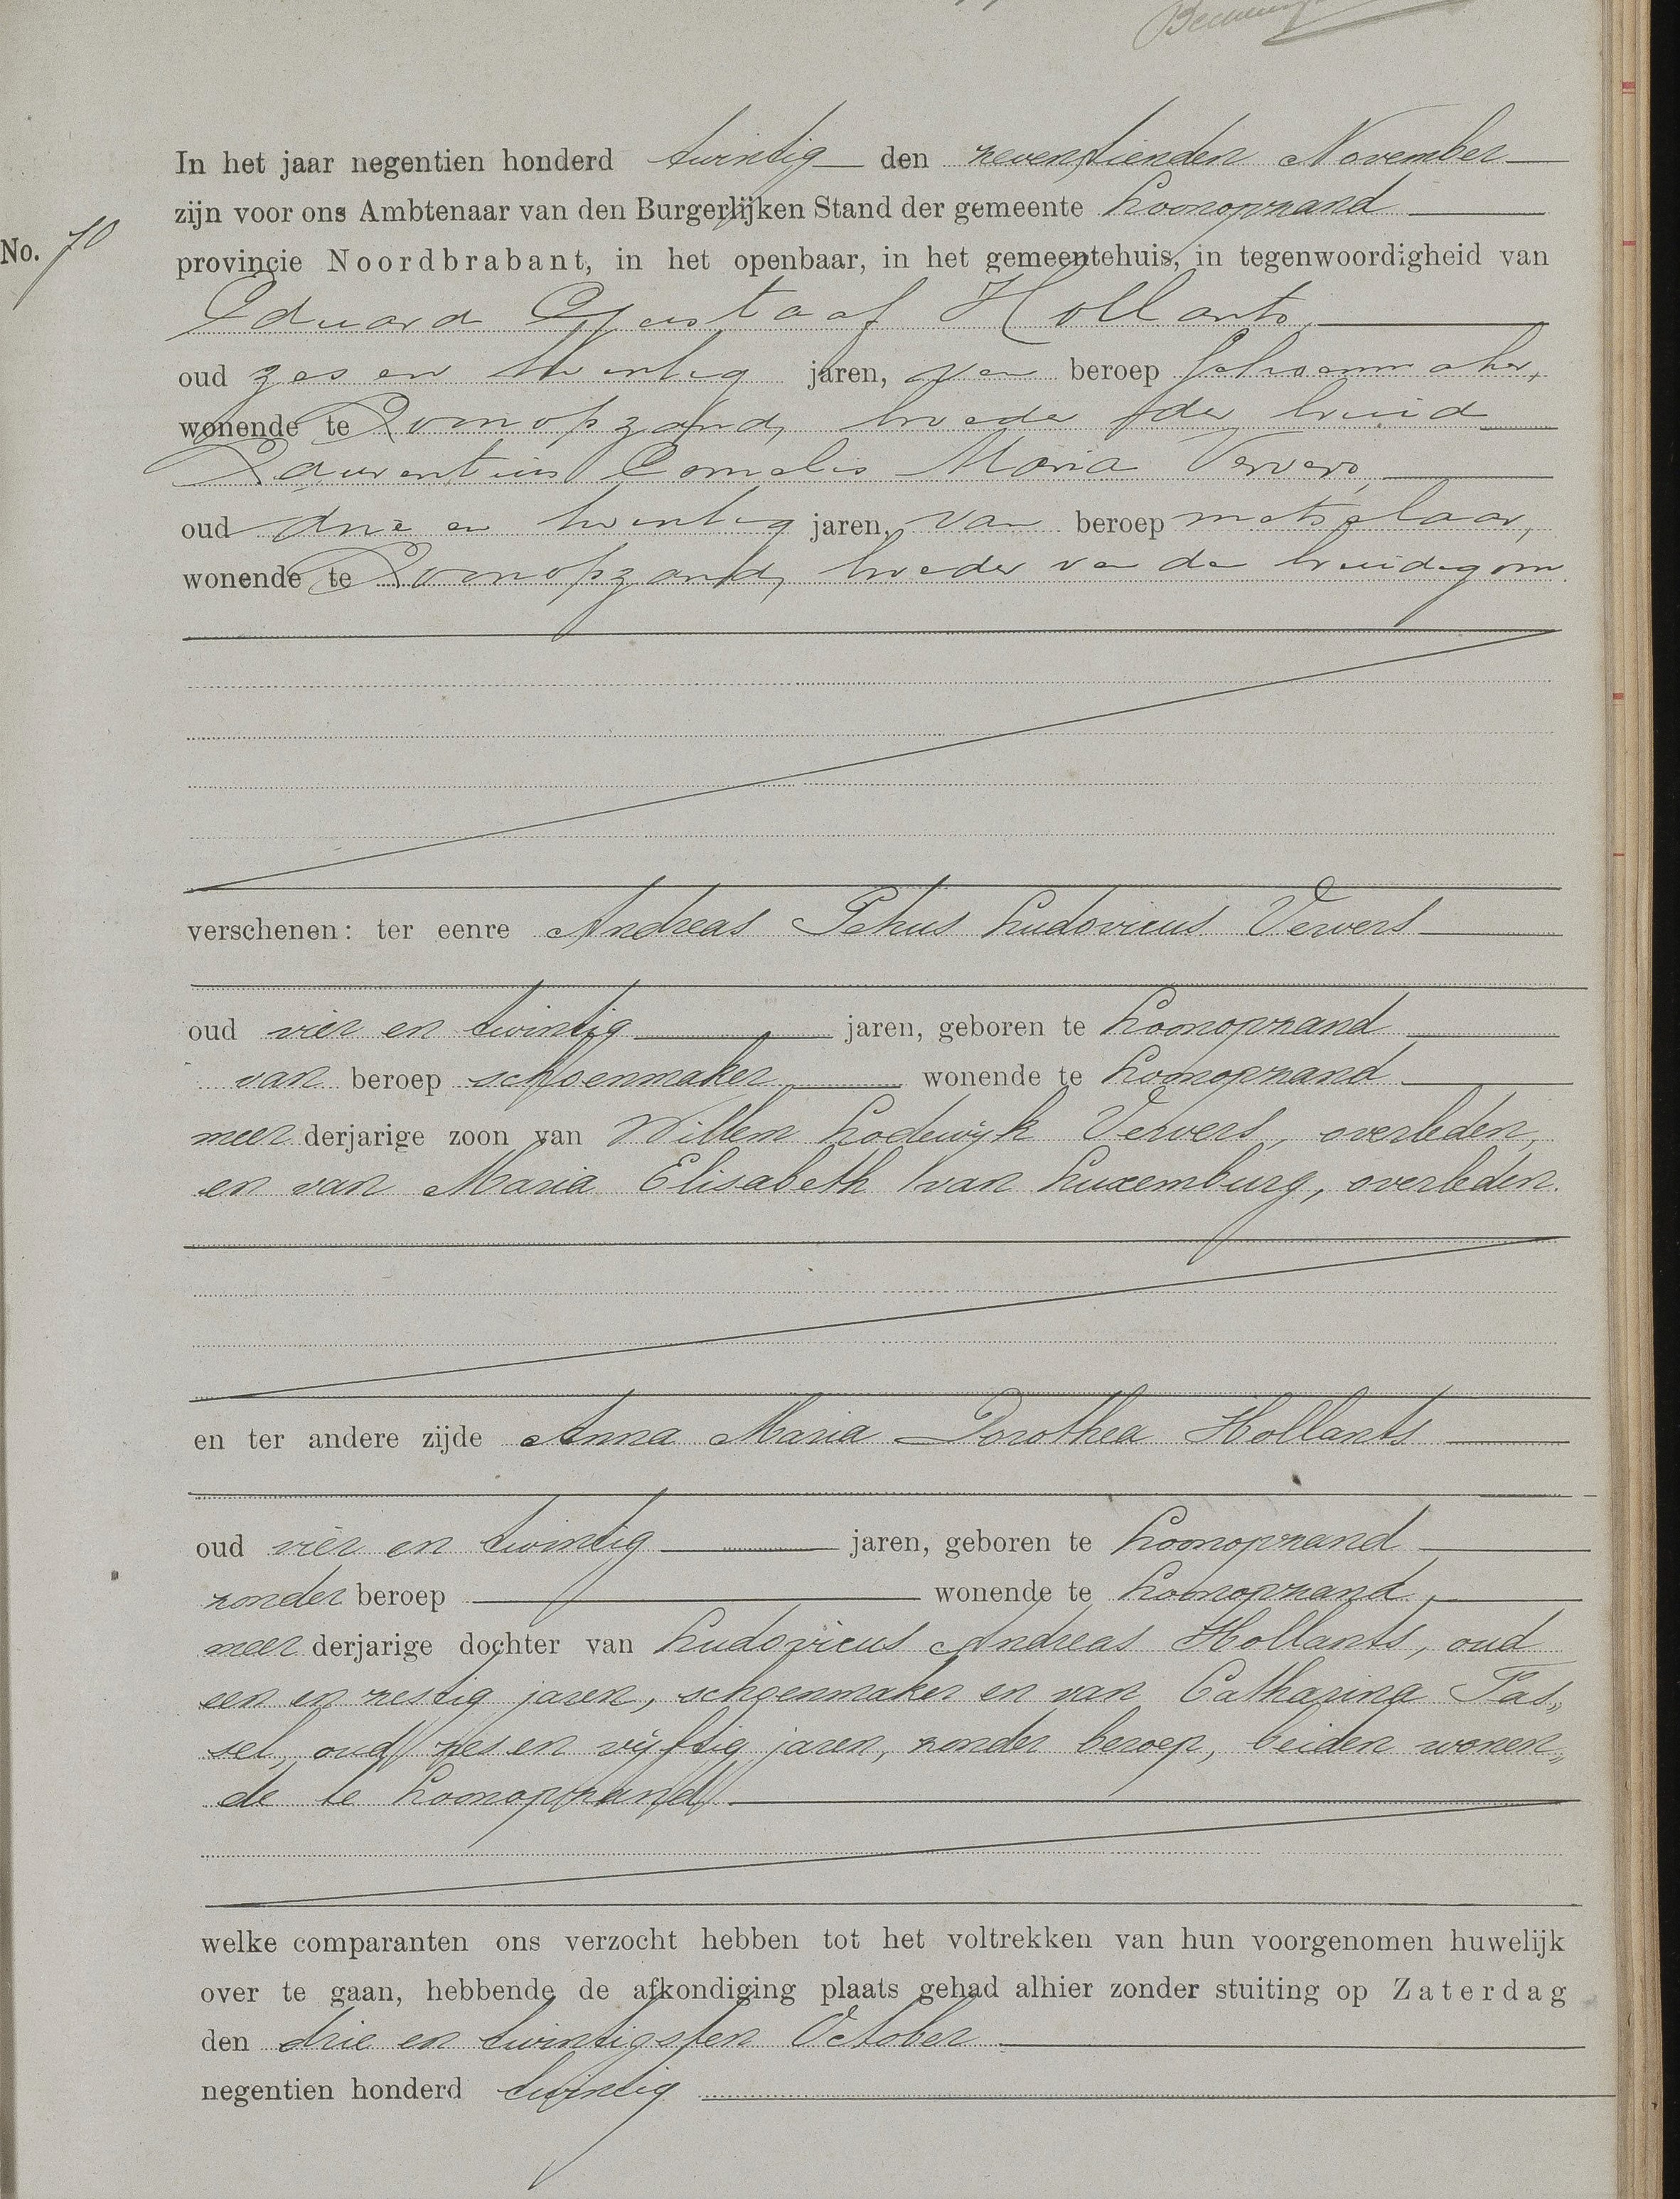 In het jaar negentien honderd twintig den zeventienden November
zijn voor ons Ambtenaar van den Burgerlijken Stand der gemeente Loonopzand
No. 70
provincie Noordbrabant, in het openbaar, in het gemeentehuis, in tegenwoordigheid van
Eduard Gustaaf Hollants,
oud zes en twintig jaren, van beroep schoenmaker,
wonende te Loonopzand, broeder der bruid
Laurentius Cornelis Maria Ververs,
oud drie en twintig jaren, van beroep metselaar,
wonende te Loonopzand, broeder van den bruidegom.
verschenen: ter eenre Andreas Petrus Ludovicus Ververs
oud vier en twintig jaren, geboren te Loonopzand
van beroep schoenmaker, wonende te Loonopzand
meer derjarige zoon van Willem Lodewijk Ververs, overleden,
en van Maria Elisabeth van Luxemburg, overleden.
en ter andere zijde Anna Maria Dorothea Hollants
oud vier en twintig jaren, geboren te Loonopzand
zonder beroep wonende te Loonopzand,
meer derjarige dochter van Ludovicus Andreas Hollants, oud
een en zestig jaren, schoenmaker en van Catharina Tas„
sel, oud zes en vijftig jaren, zonder beroep, beiden wonen„
de te Loonopzand.
welke comparanten ons verzocht hebben tot het voltrekken van hun voorgenomen huwelijk
over te gaan, hebbende de afkondiging plaats gehad alhier zonder stuiting op Zaterdag
den drie en twintigsten October
negentien honderd twintig